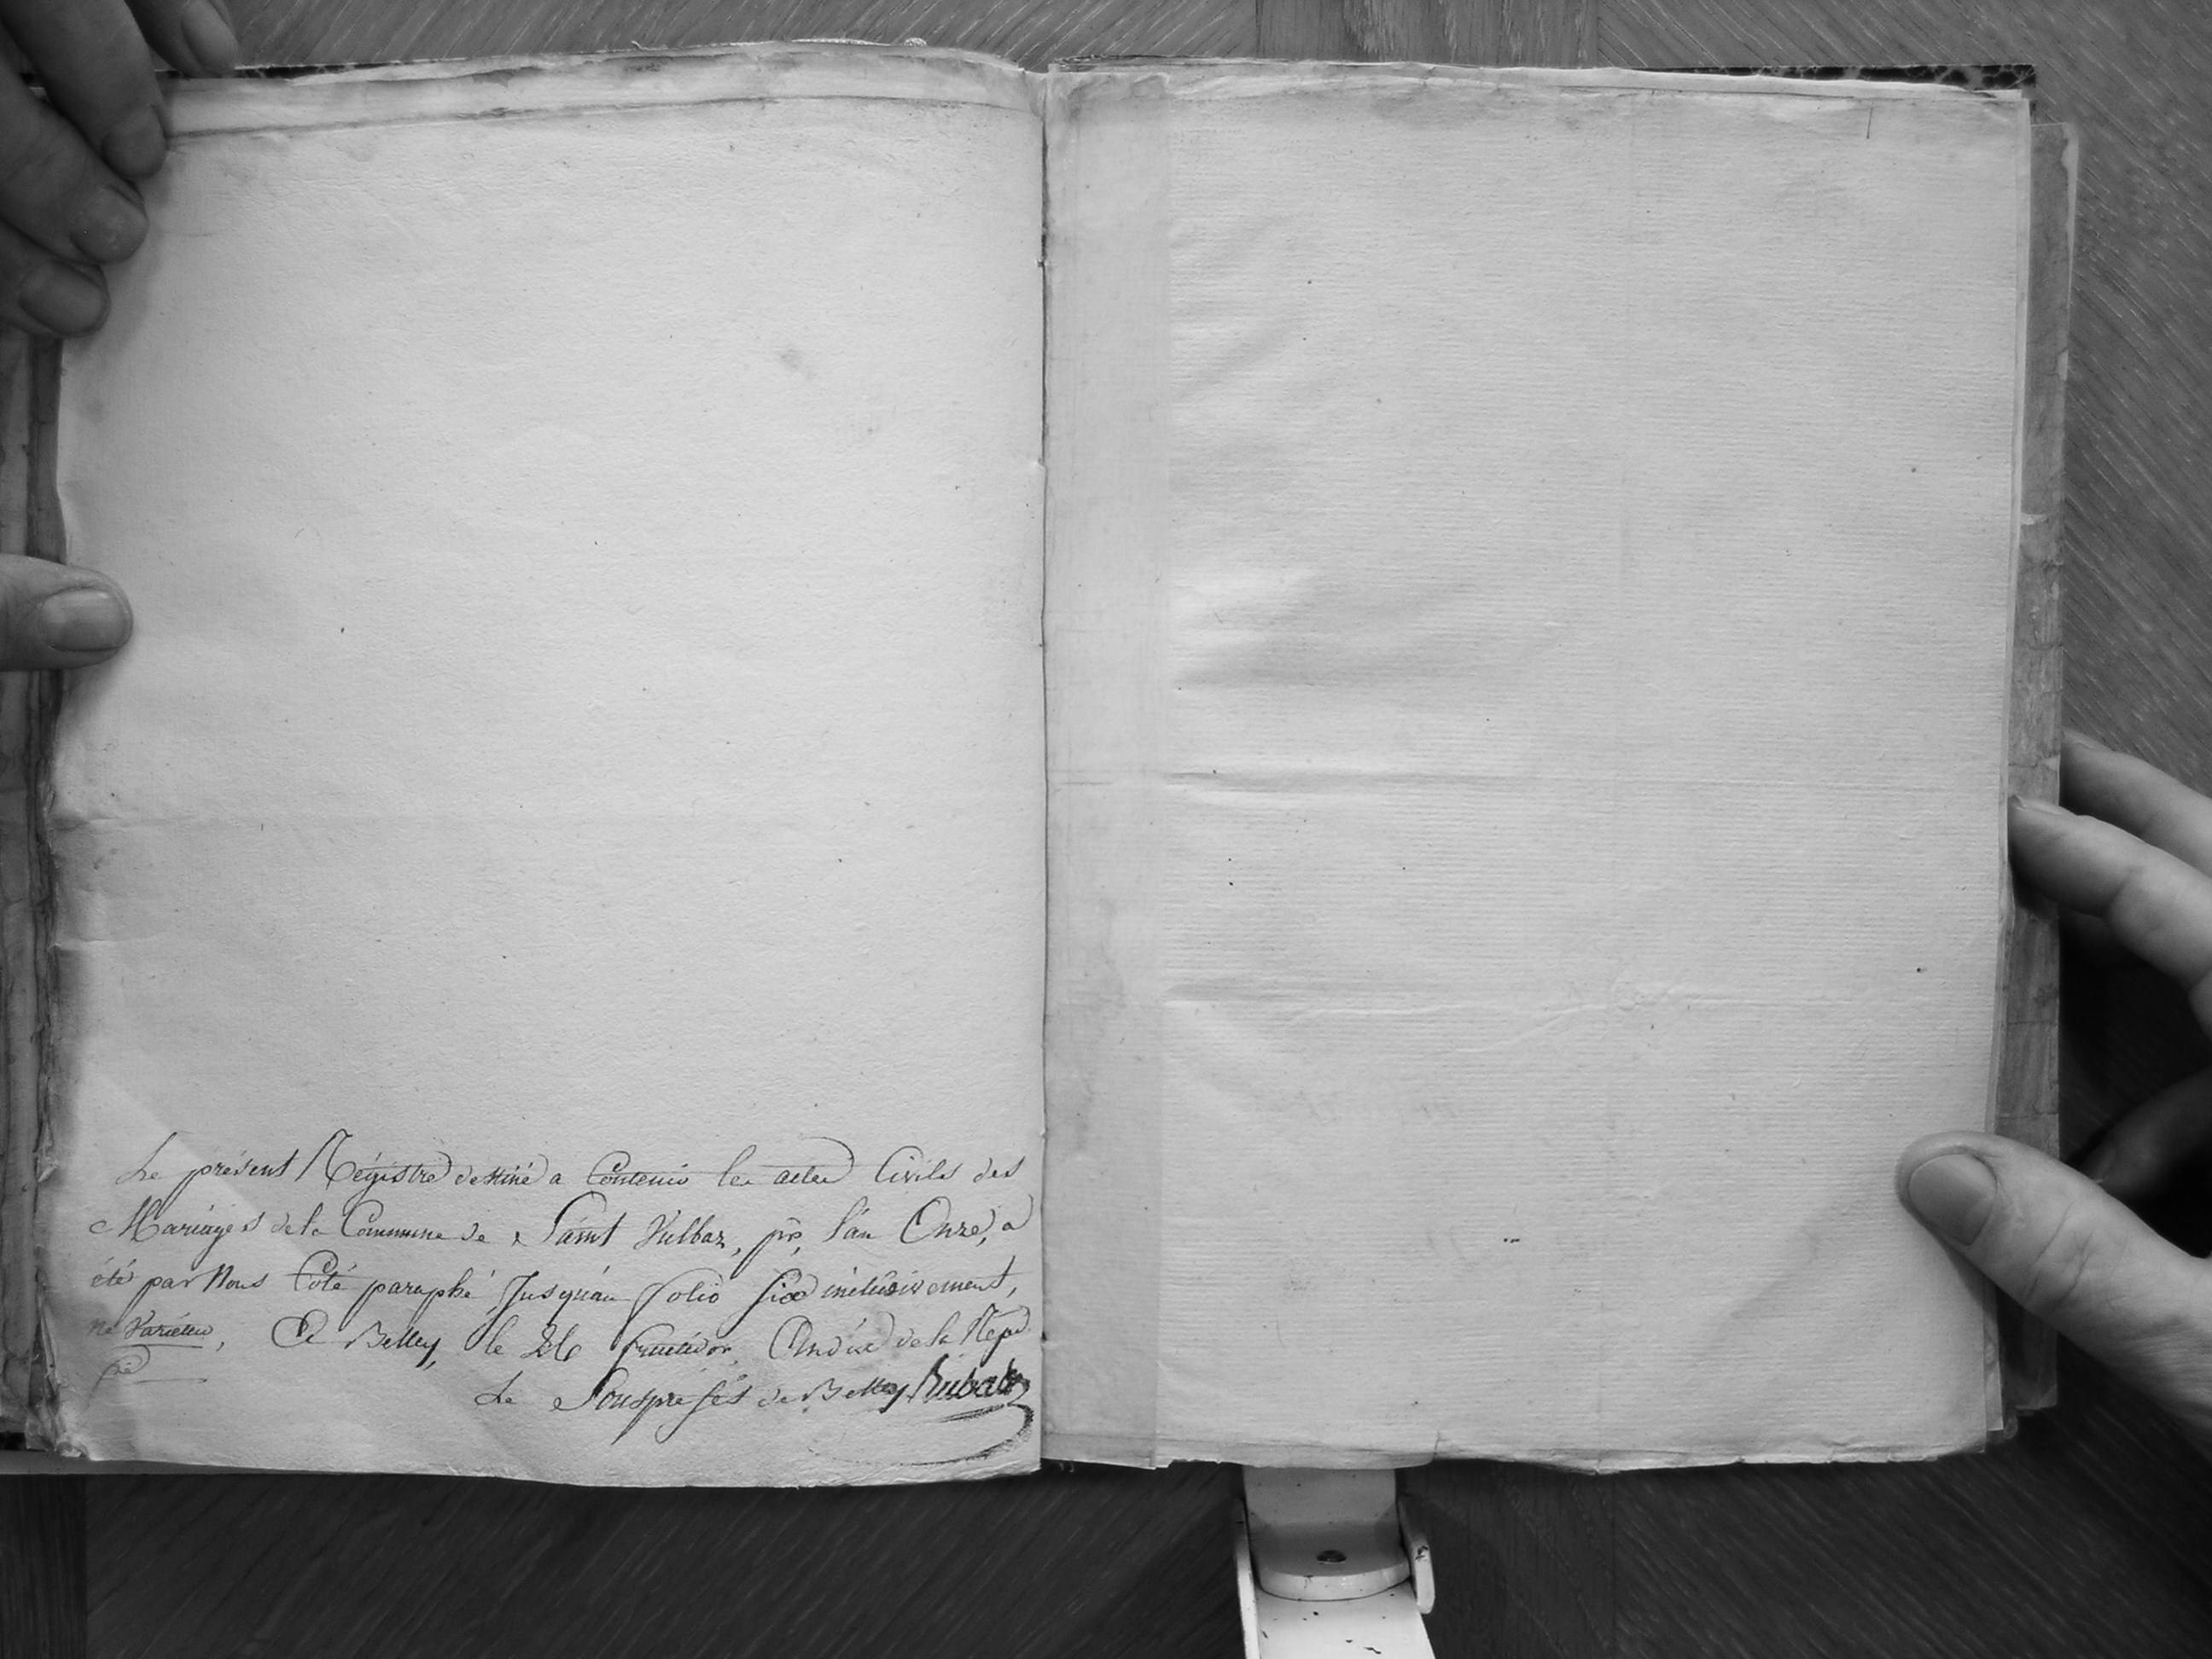 Le présent Régistre destiné a Contenir les actes Civils des
Mariages de la Commune de Saint Vulbaz, pr. l'an Onze, a
été par Nous Coté paraphé Jusqu'au folio six inclusivement,
ne Varietur, A Belley, le 26 fructidor, An dix de la Répu
Le Souspréfêt de Belley Rubat